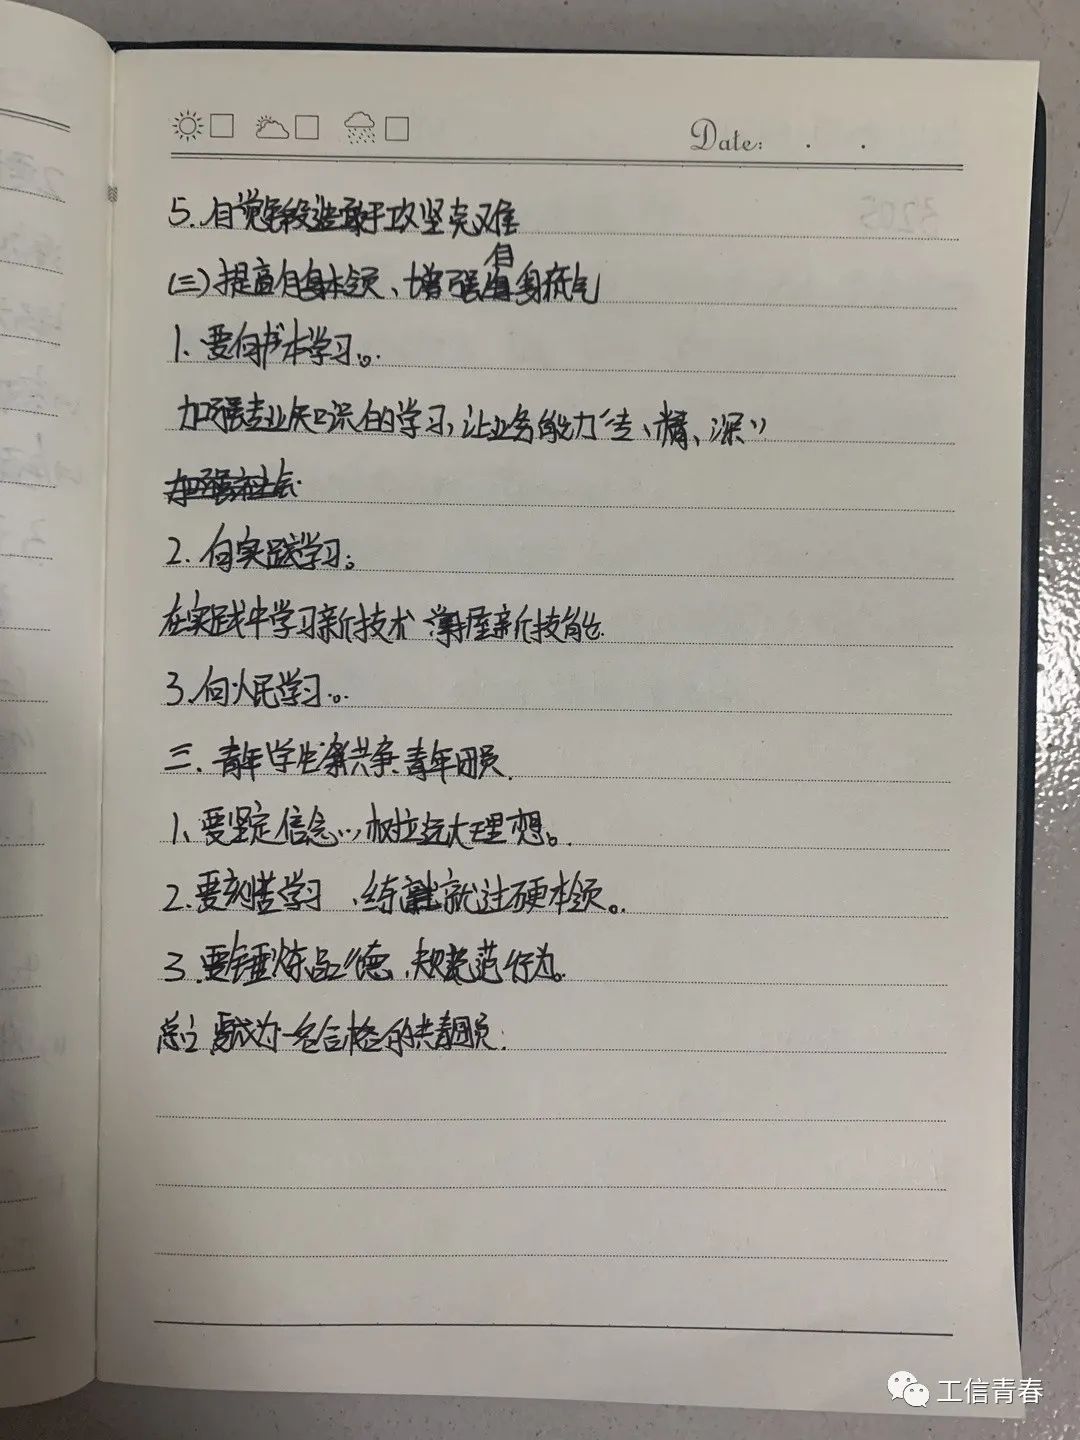 Date: . .
5. 自觉锻造敢于攻坚克难
(三)提高自身本领、增强自身底气
1. 要向书本学习。
加强专业知识的学习,让业务能力“专、精、深”
加强社会
2. 向实践学习。
在实践中学习新技术 掌握新技能.
3. 向人民学习。
三. 青年学生 共争 青年团员.
1. 要坚定信念, 树立远大理想。
2. 要刻苦学习、练就过硬本领。
3. 要锤炼品德、规范行为。
总之 要成为一名合格的共青团员.
工信青春